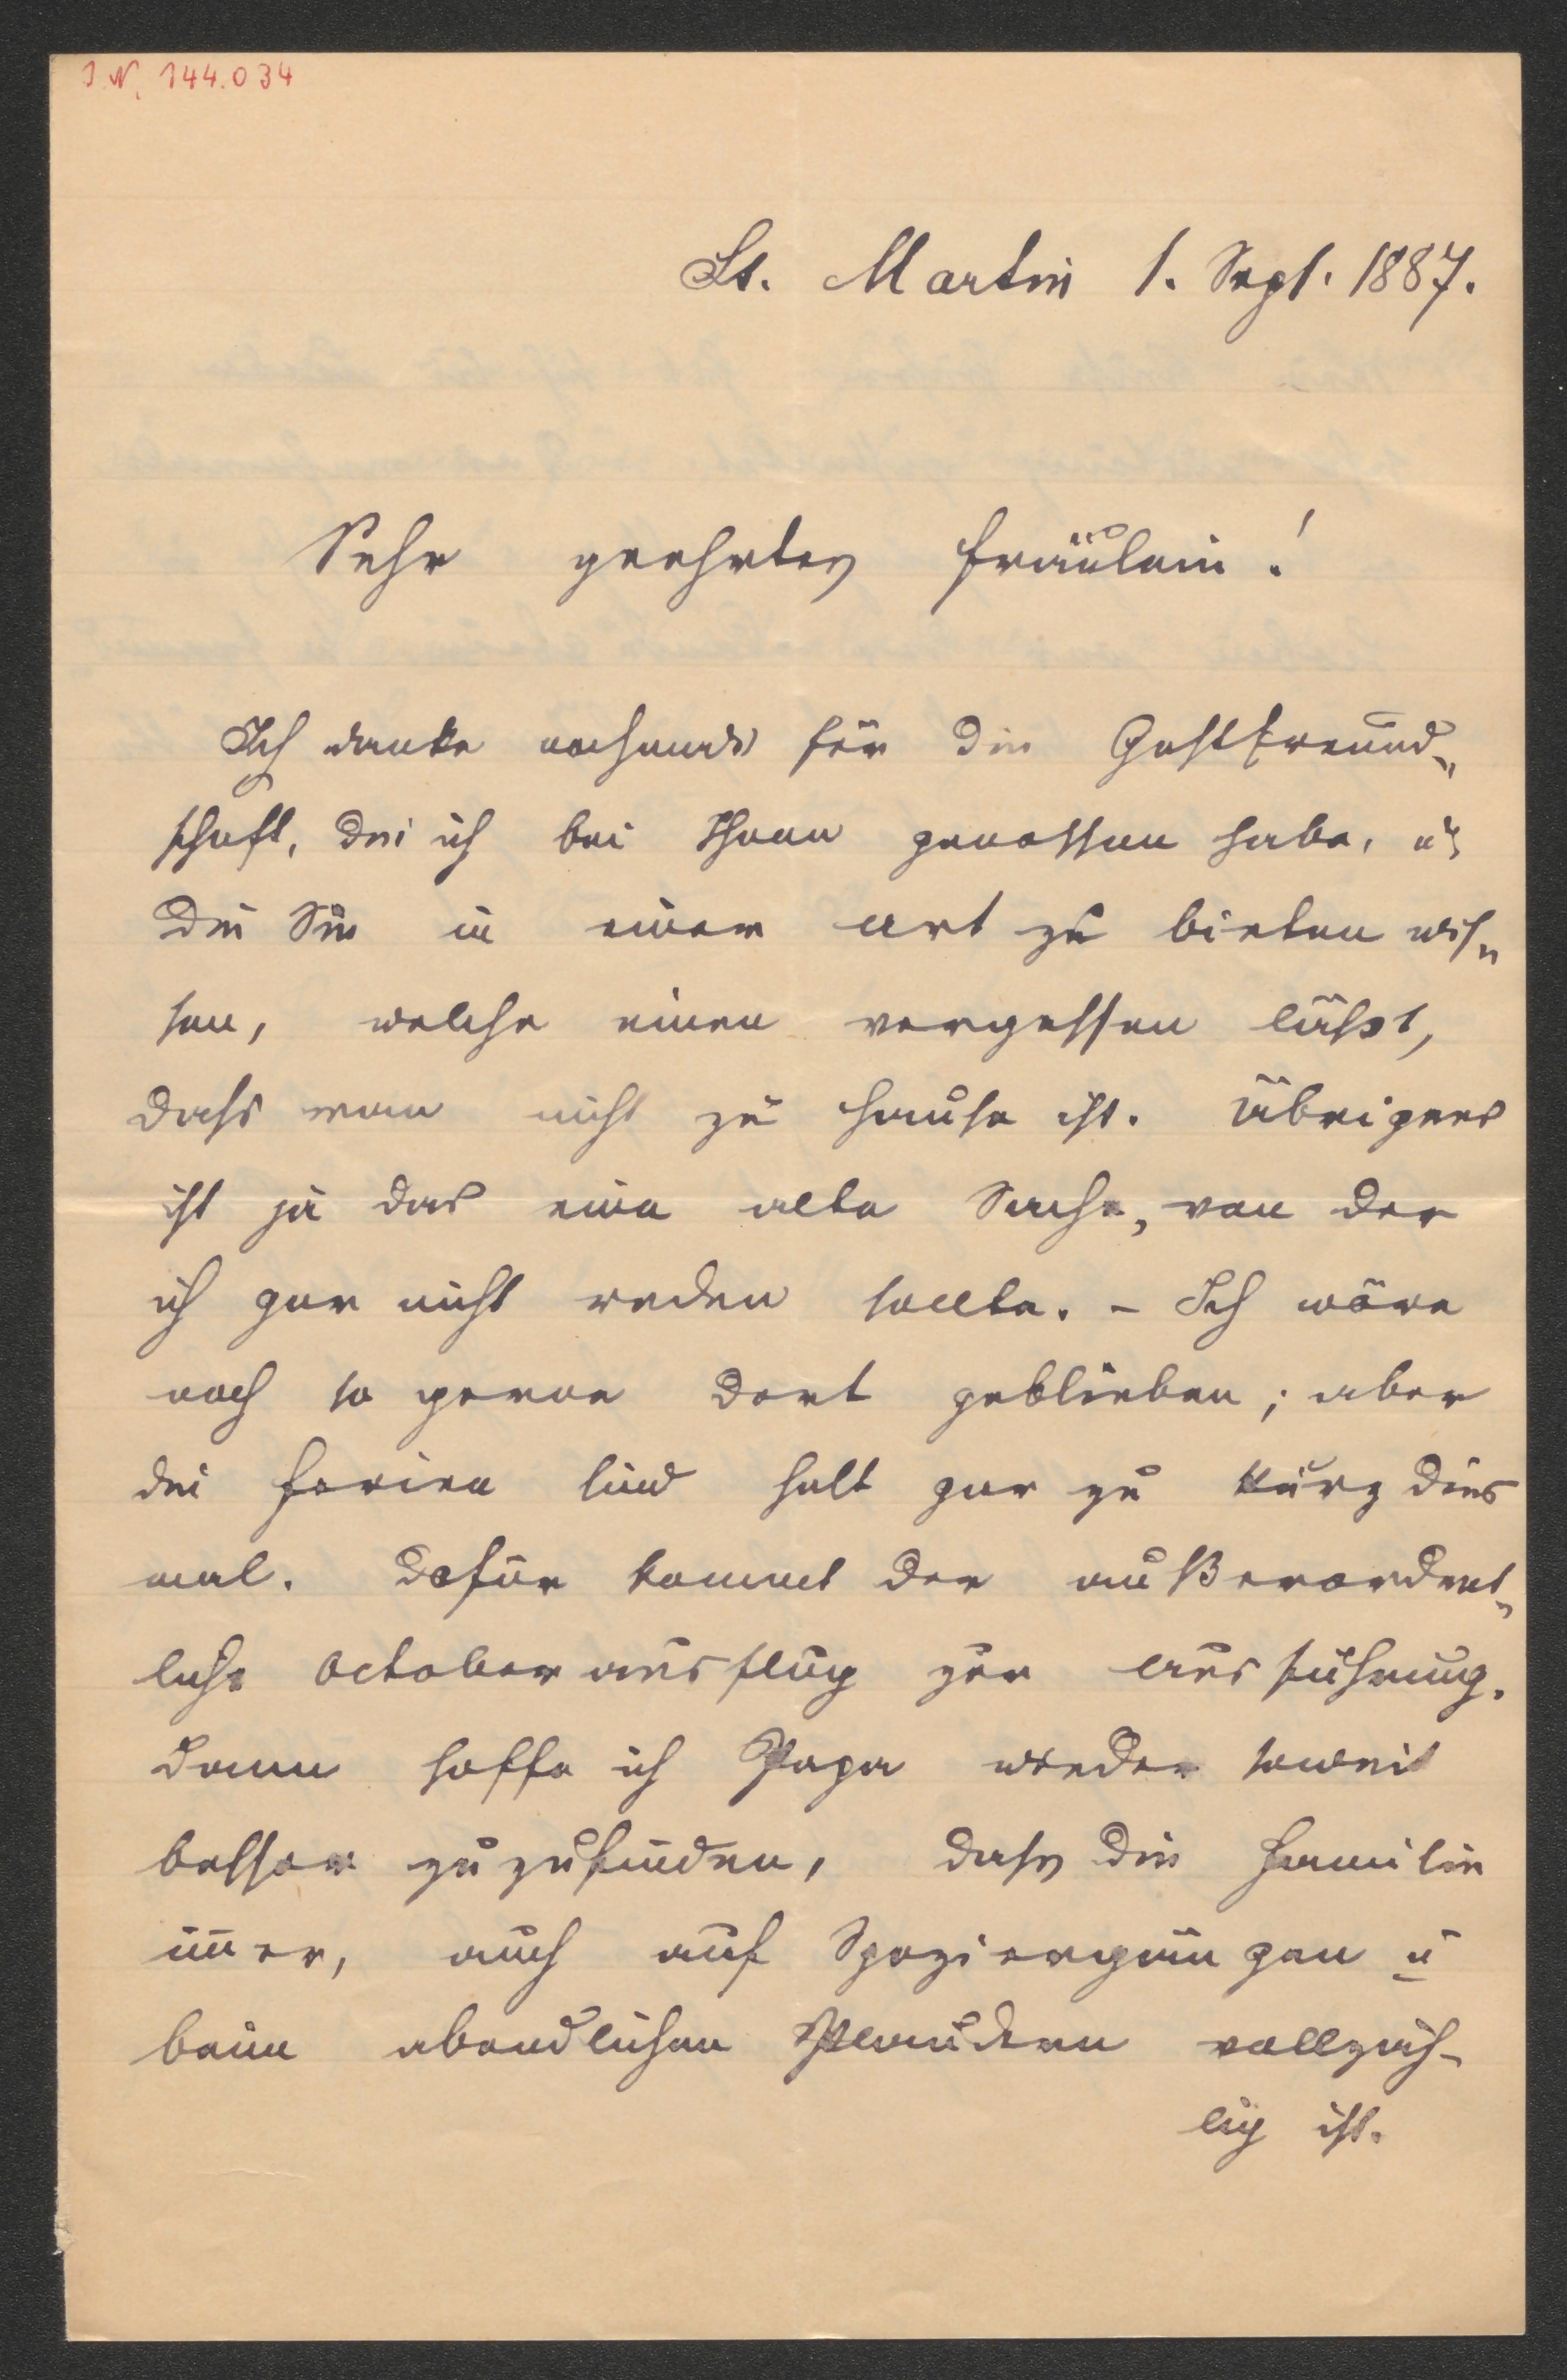 I. N. 144.034
St. Martin 1. Sept. 1887.
Sehr geehrtes Fräulein!
Ich danke nochmals für die Gastfreund„
schaft, die ich bei Ihnen genossen habe, u.
die Sie in einer Art zu bieten wis„
sen, welche einen vergessen läßt,
dass man nicht zu Hause ist. Übrigens
ist ja das eine alte Sache, von der
ich gar nicht reden sollte. – Ich wäre
noch so gerne dort geblieben; aber
die Ferien sind halt gar zu kurz dies
mal. Dafür kommt der außerordent„
liche Octoberausflug zur Ausführung.
Dann hoffe ich Papa wieder soweit
besser zuzufinden, dass die Familie
im̅er, auch auf Spaziergängen u
beim abendlichen Plaudern vollzäh-
lig ist.